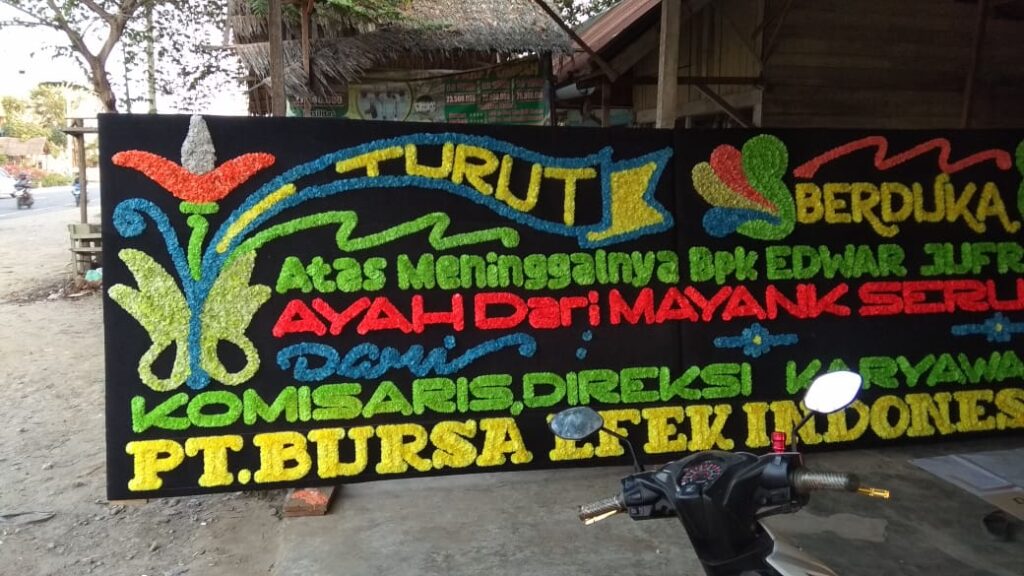 TURUT BERDUKA
Atas Meninggalnya Bpk EDWAR JUFR
AYAH Dari MAYANK SERU
Dari :
KOMISARIS,DIREKSI KARYAWA
PT.BURSA EFEK INDONES